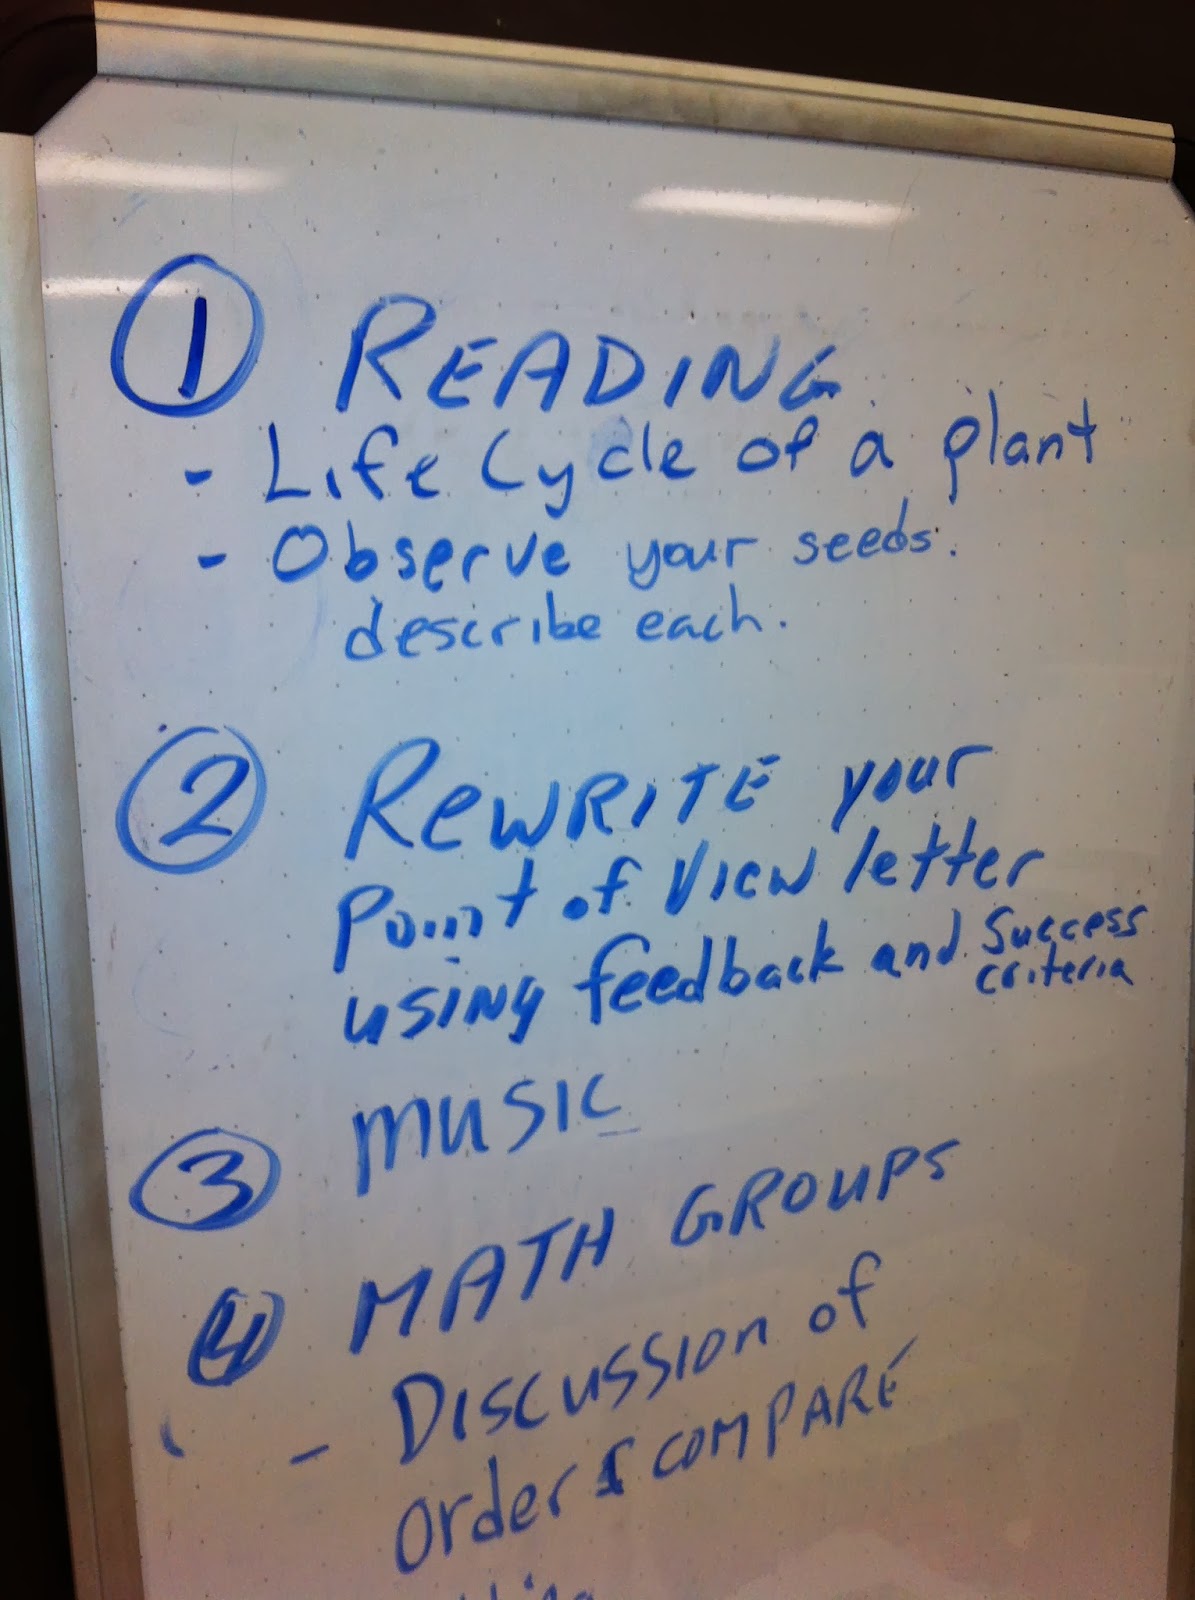 1 READING
- Life Cycle of a plant
- Observe your seeds.
describe each.
2 REWRITE your
Point of View letter
using feedback and success
criteria
3 MUSIC
4 MATH GROUPS
- Discussion of
order & COMPARE